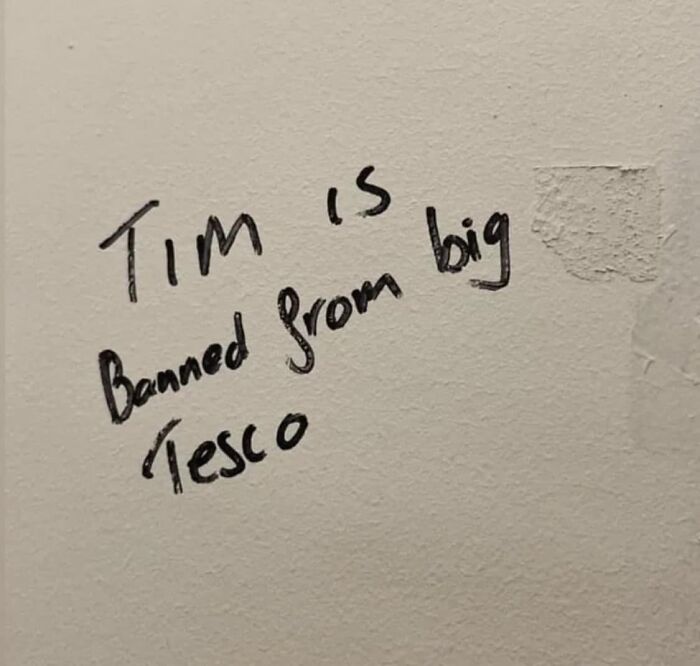 TIM is
Banned from big
Tesco